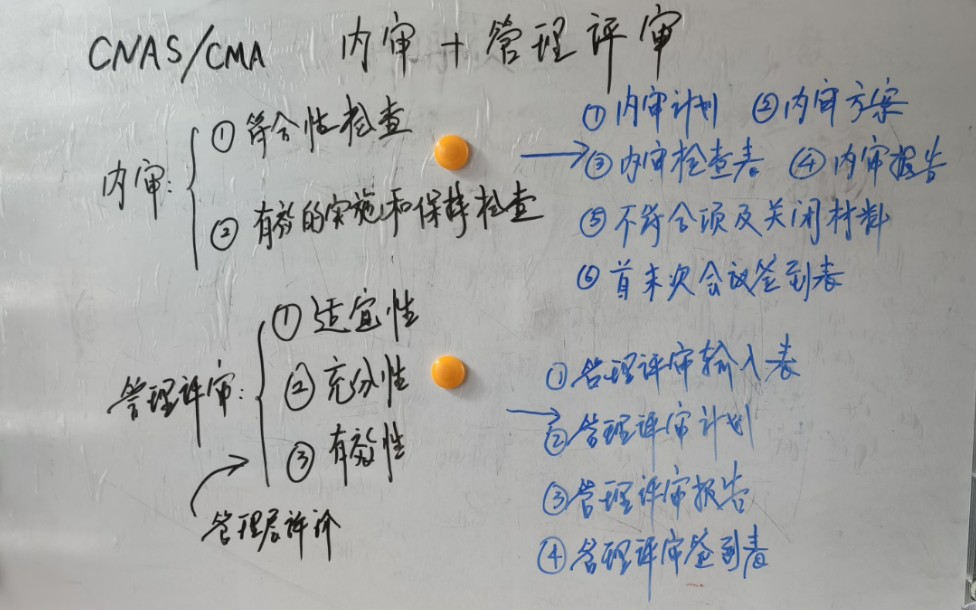 CNAS/CMA 内审+管理评审
内审:
①符合性检查
②有效的实施和保持检查
①内审计划 ②内审方案
③内审检查表 ④内审报告
⑤不符合项及关闭材料
⑥首末次会议签到表
管理评审:
①适宜性
②充分性
③有效性
管理层评价
①管理评审输入表
②管理评审计划
③管理评审报告
④管理评审签到表